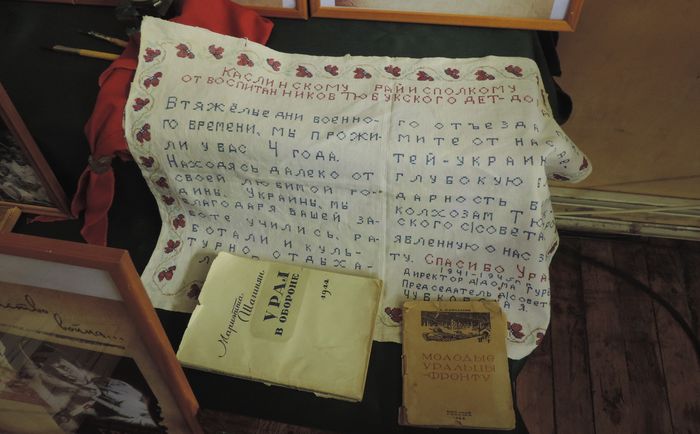 КАСЛИНСКОМУ РАЙИСПОЛКОМУ
ОТ ВОСПИТАННИКОВ ТЮБУКСКОГО ДЕТ-ДО
В ТЯЖЁЛЫЕ ДНИ ВОЕННО-
ГО ВРЕМЕНИ, МЫ ПРОЖИ-
ЛИ У ВАС 4 ГОДА.
НАХОДЯСЬ ДАЛЕКО ОТ
СВОЕЙ ЛЮБИМОЙ РО-
ДИНЫ УКРАИНЫ, МЫ
БЛАГОДАРЯ ВАШЕЙ ЗА-
БОТЕ УЧИЛИСЬ, РА-
БОТАЛИ И КУЛЬ-
ТУРНО ОТДЫХА-
ГО ОТЪЕЗДА
МИТЕ ОТ НАС
ТЕЙ-УКРАИН
ГЛУБОКУЮ
ДАРНОСТЬ
КОЛХОЗАМ ТЮ
СКОГО С/СОВЕТА
ЯВЛЕННУЮ О НАС З
ТУ. СПАСИБО УРА
1941-1945
ДИРЕКТОР Д/ДОМА
ПРЕДСЕДАТЕЛЬ С/СОВЕТ
Мариэтта Шагинян
УРАЛ
В ОБОРОНЕ
МОЛОДЫЕ
УРАЛЬЦЫ
-ФРОНТУ
война...